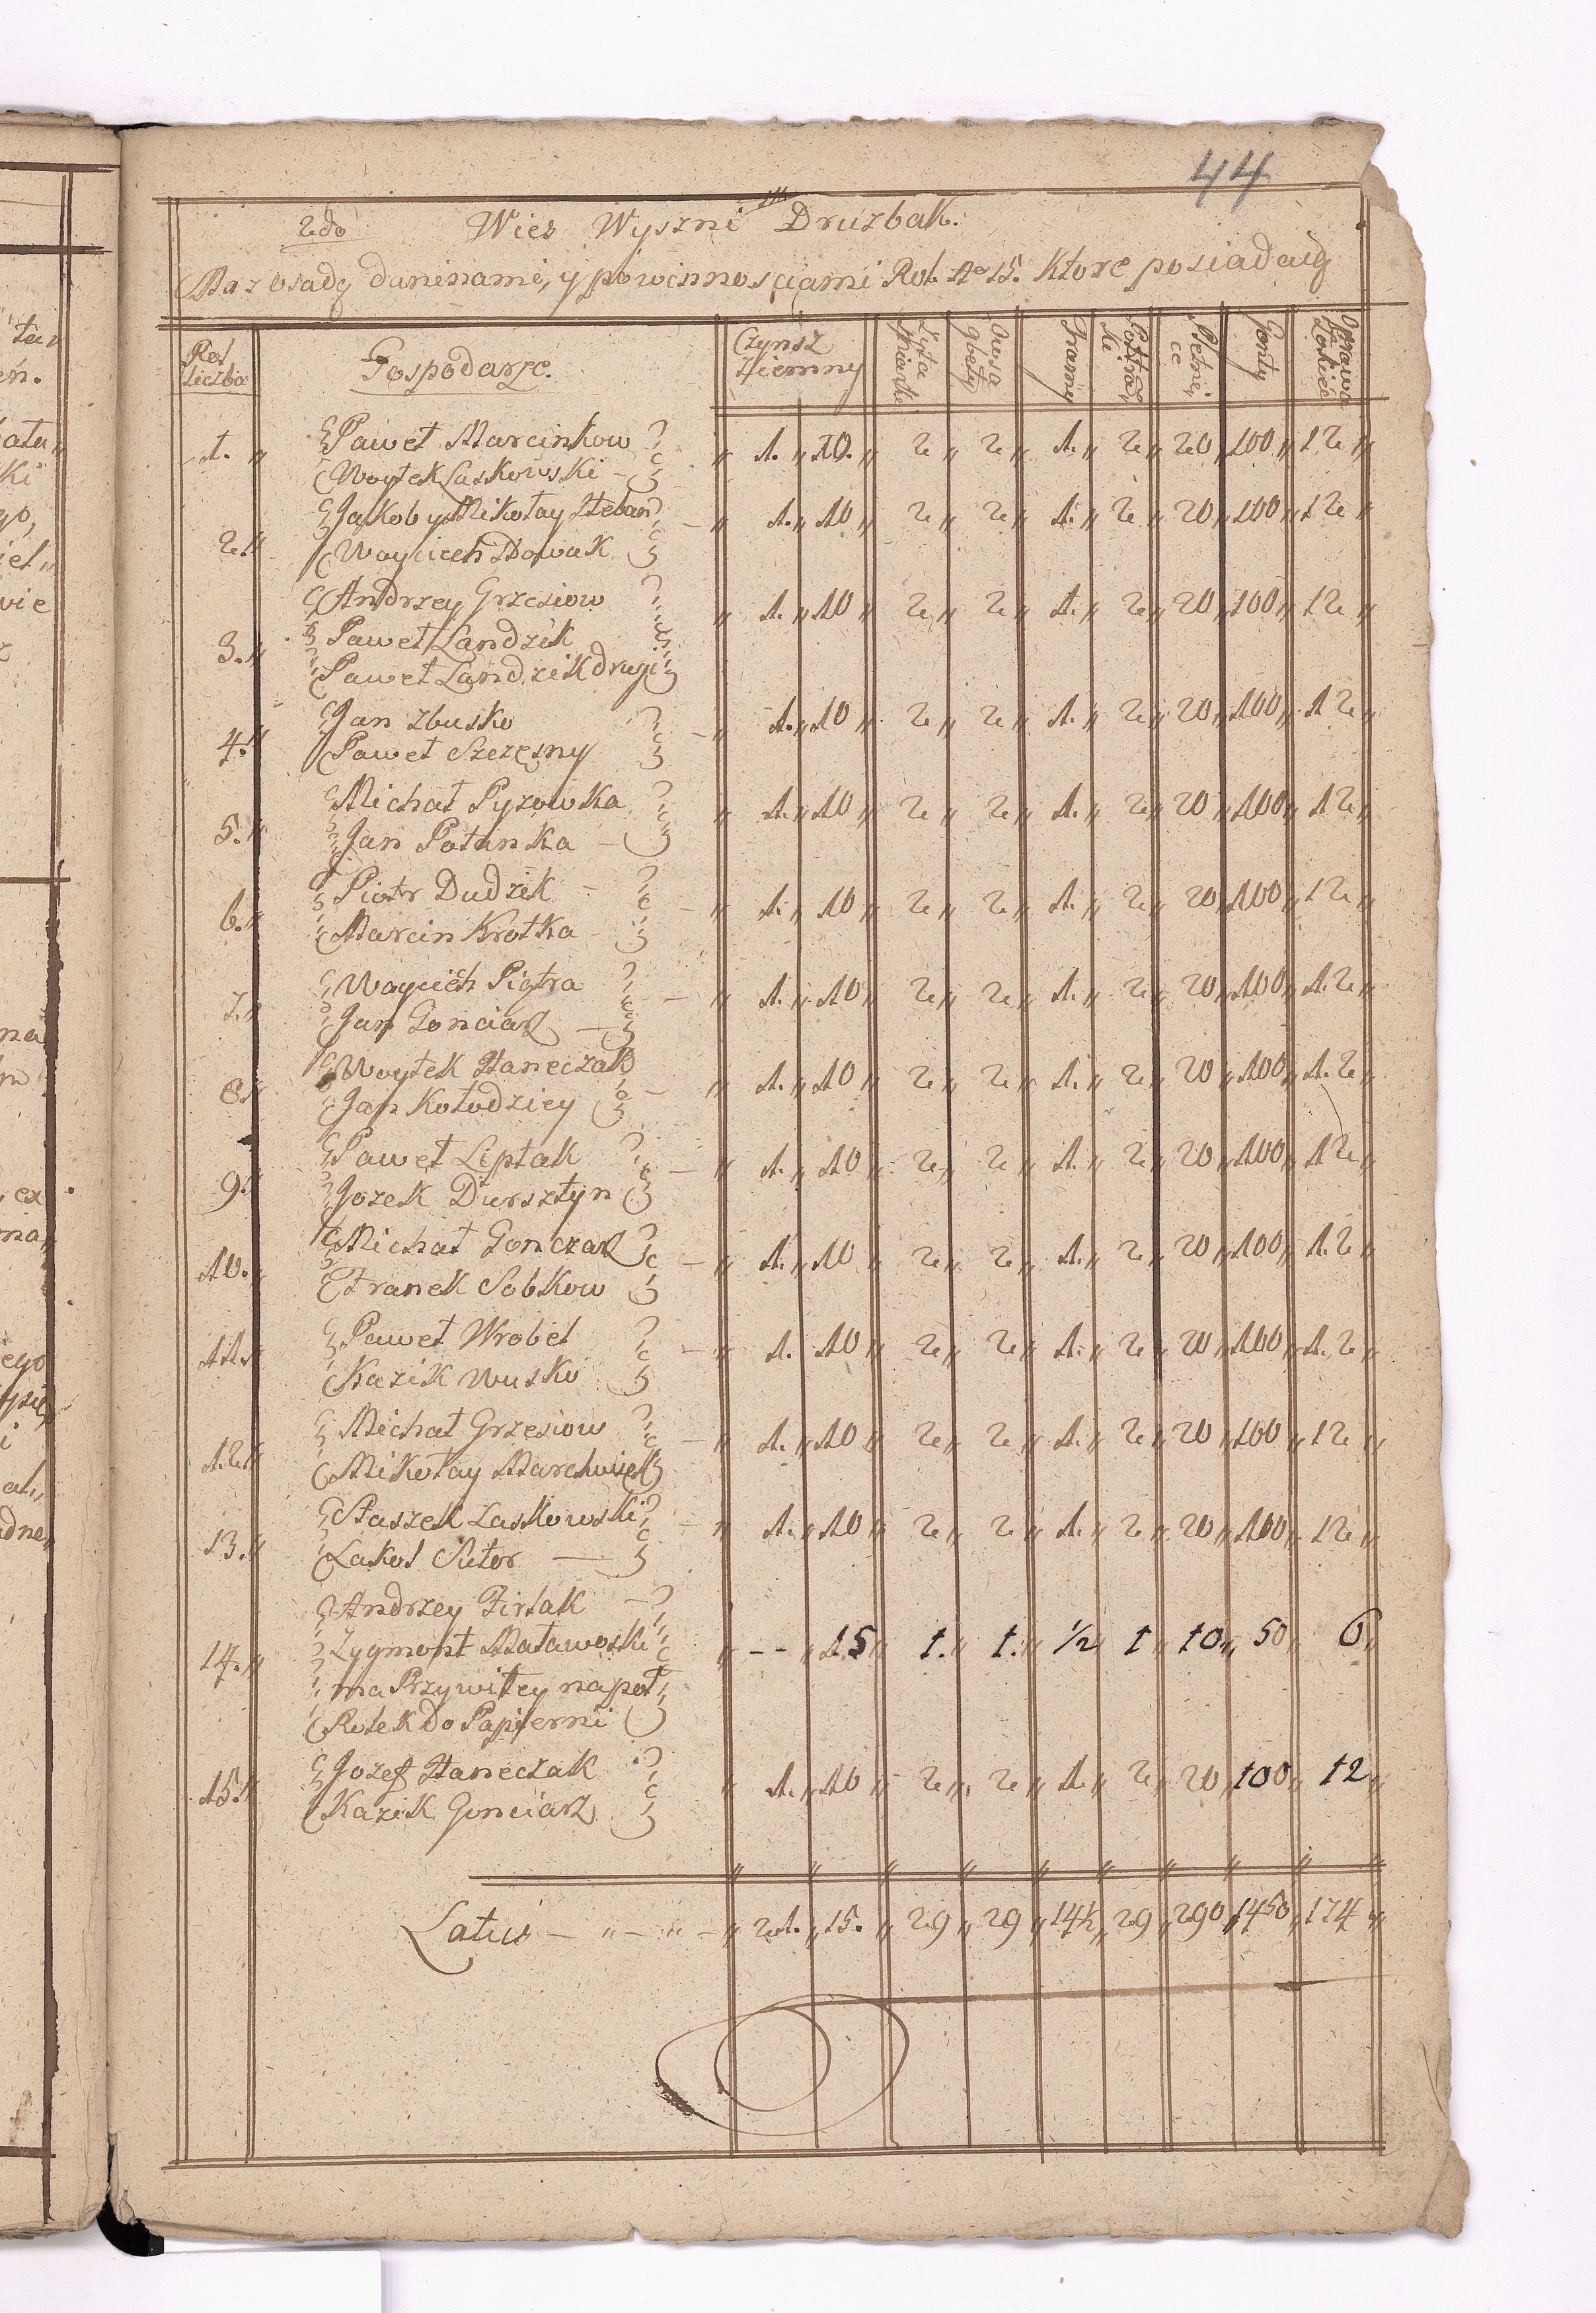 44
2do Wies Wyszni Druzbak.
Na z osadą daninami, y powinnosciami Rol No 15. Ktore posiadaią
Rol liczba
Gospodarze.
Czynsz Ziemny
Zyta
Owsa gbeły
Tramy
Płetnice
Gonty
Łokiec
1. Paweł Marcinkow 1. 10. 2 2 1. 2 20 100 12
Woytek Laskowski
2. Jakob y Mikołay Steban 1. 10 2 2 1. 2 20 100 12
Woyciech Nowak
3. Andrzey Grzesiow 1. 10 2 2 1. 2 20 100 12
Paweł Landzik
Paweł Landzik drugi
4. Jan Zbusko 1. 10 2 2 1. 2 20 100 12
Paweł Szczęsny
5. Michał Pyzowka 1. 10 2 2 1. 2 20 100 12
Jan Polanka
6. Piotr Dudzik 1. 10 2 2 1. 2 20 100 12
Marcin Krotka
7. Woyciech Piątra 1. 10 2 2 1. 2 20 100 12
Jan Gonciarz
8. Woytek Haneczak 1. 10 2 2 1. 2 20 100 12
Jan Kołodziey
9. Paweł Liptak 1. 10 2 2 1. 2 20 100 12
Jozek Dursztyn
10. Michał Gonczarz 1. 10 2 2 1. 2 20 100 12
Franek Sobkow
11. Paweł Wrobel 1. 10 2 2 1. 2 20 100 12
Kazik Wusko
12. Michał Grzesiow 1. 10 2 2 1. 2 20 100 12
Mikołay Marchwicek
13. Staszek Laskowski 1. 10 2 2 1. 2 20 100 12
14. Andrzey Firlak
Zygmont Maławoski - - 15 1. 1. 1/2 1 10 50 6
ma Przywiley na poł
Rolek do Papierni
15. Jozef Haneczak 1. 10 2 2 1. 2 20 100 12
Kazik Gonciarz
Latus 21. 15. 29 29 14½ 29 290 1450 174